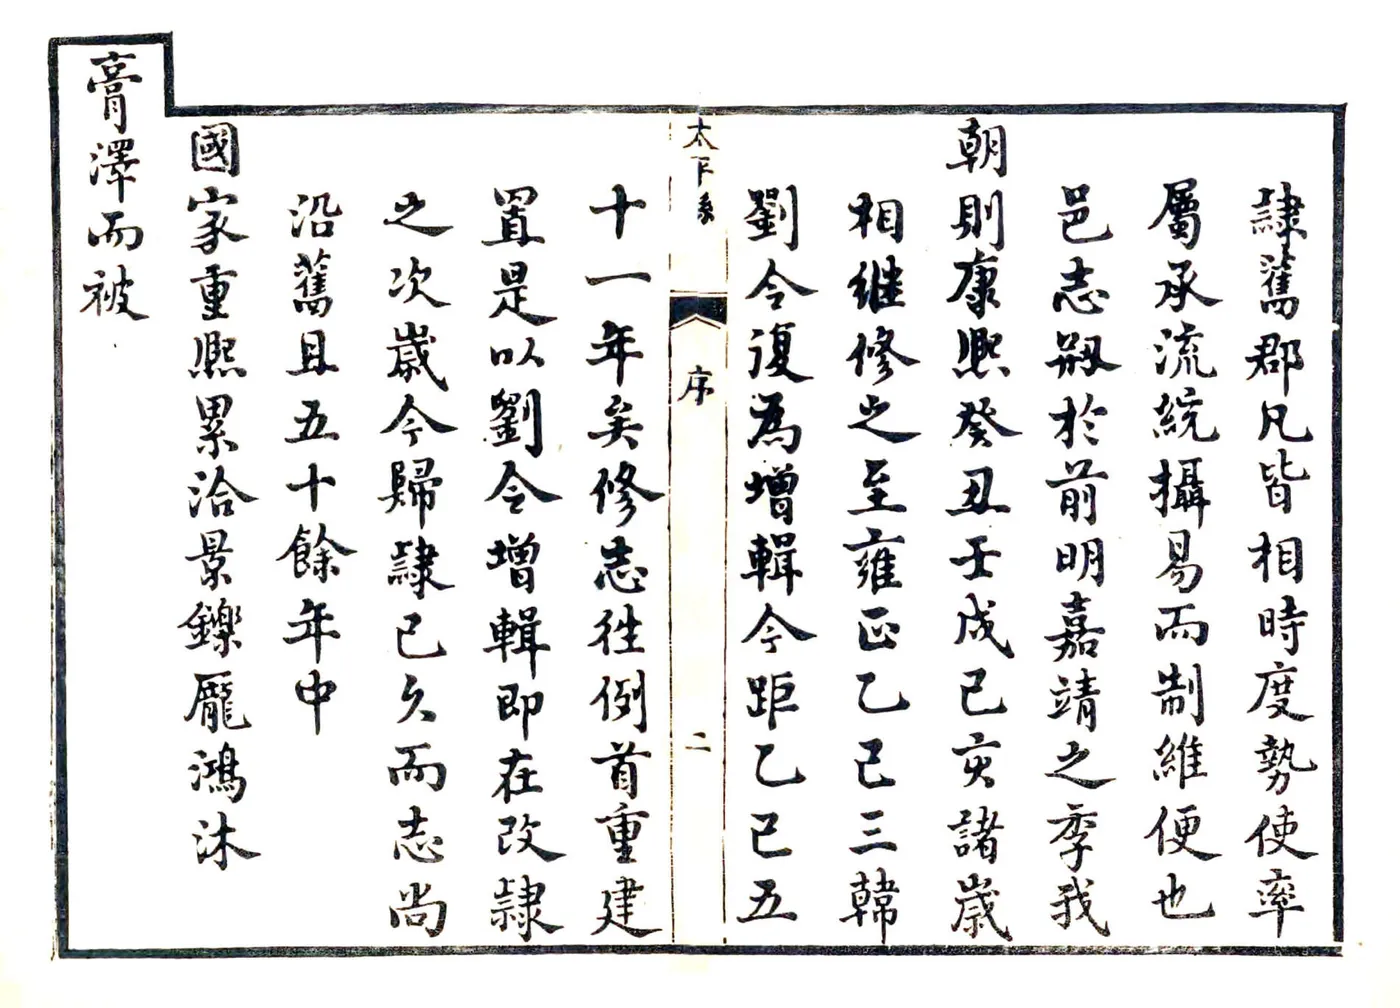 隸舊郡凡皆相時度勢使率
屬承流統攝易而制維便也
邑志剏於前明嘉靖之季我
朝則康熙癸丑壬戌己亥諸歲
相継修之至雍正乙巳三韓
劉令復為增輯今距乙巳五
序
二
十一年矣修志徃例首重建
置是以劉令增輯即在改隸
之次歲今歸隸已久而志尚
沿舊且五十餘年中
國家重熙累洽景鑠龎鴻沐
膏澤而被